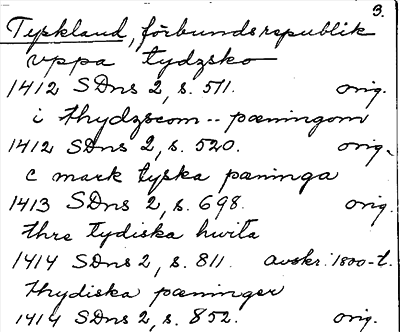 3.
Tyskland, förbundsrepublik
vppa tydzsko
1412 SDns 2, s. 511. orig.
i thydzscom -- pæningom
1412 SDns 2, s. 520. orig.
c mark tyska pæninga
1413 SDns 2, s. 698. orig.
thre tydiska hwita
1414 SDns 2, s. 811. avskr. 1800-t.
thydiska pæninger
1414 SDns 2, s. 852. orig.